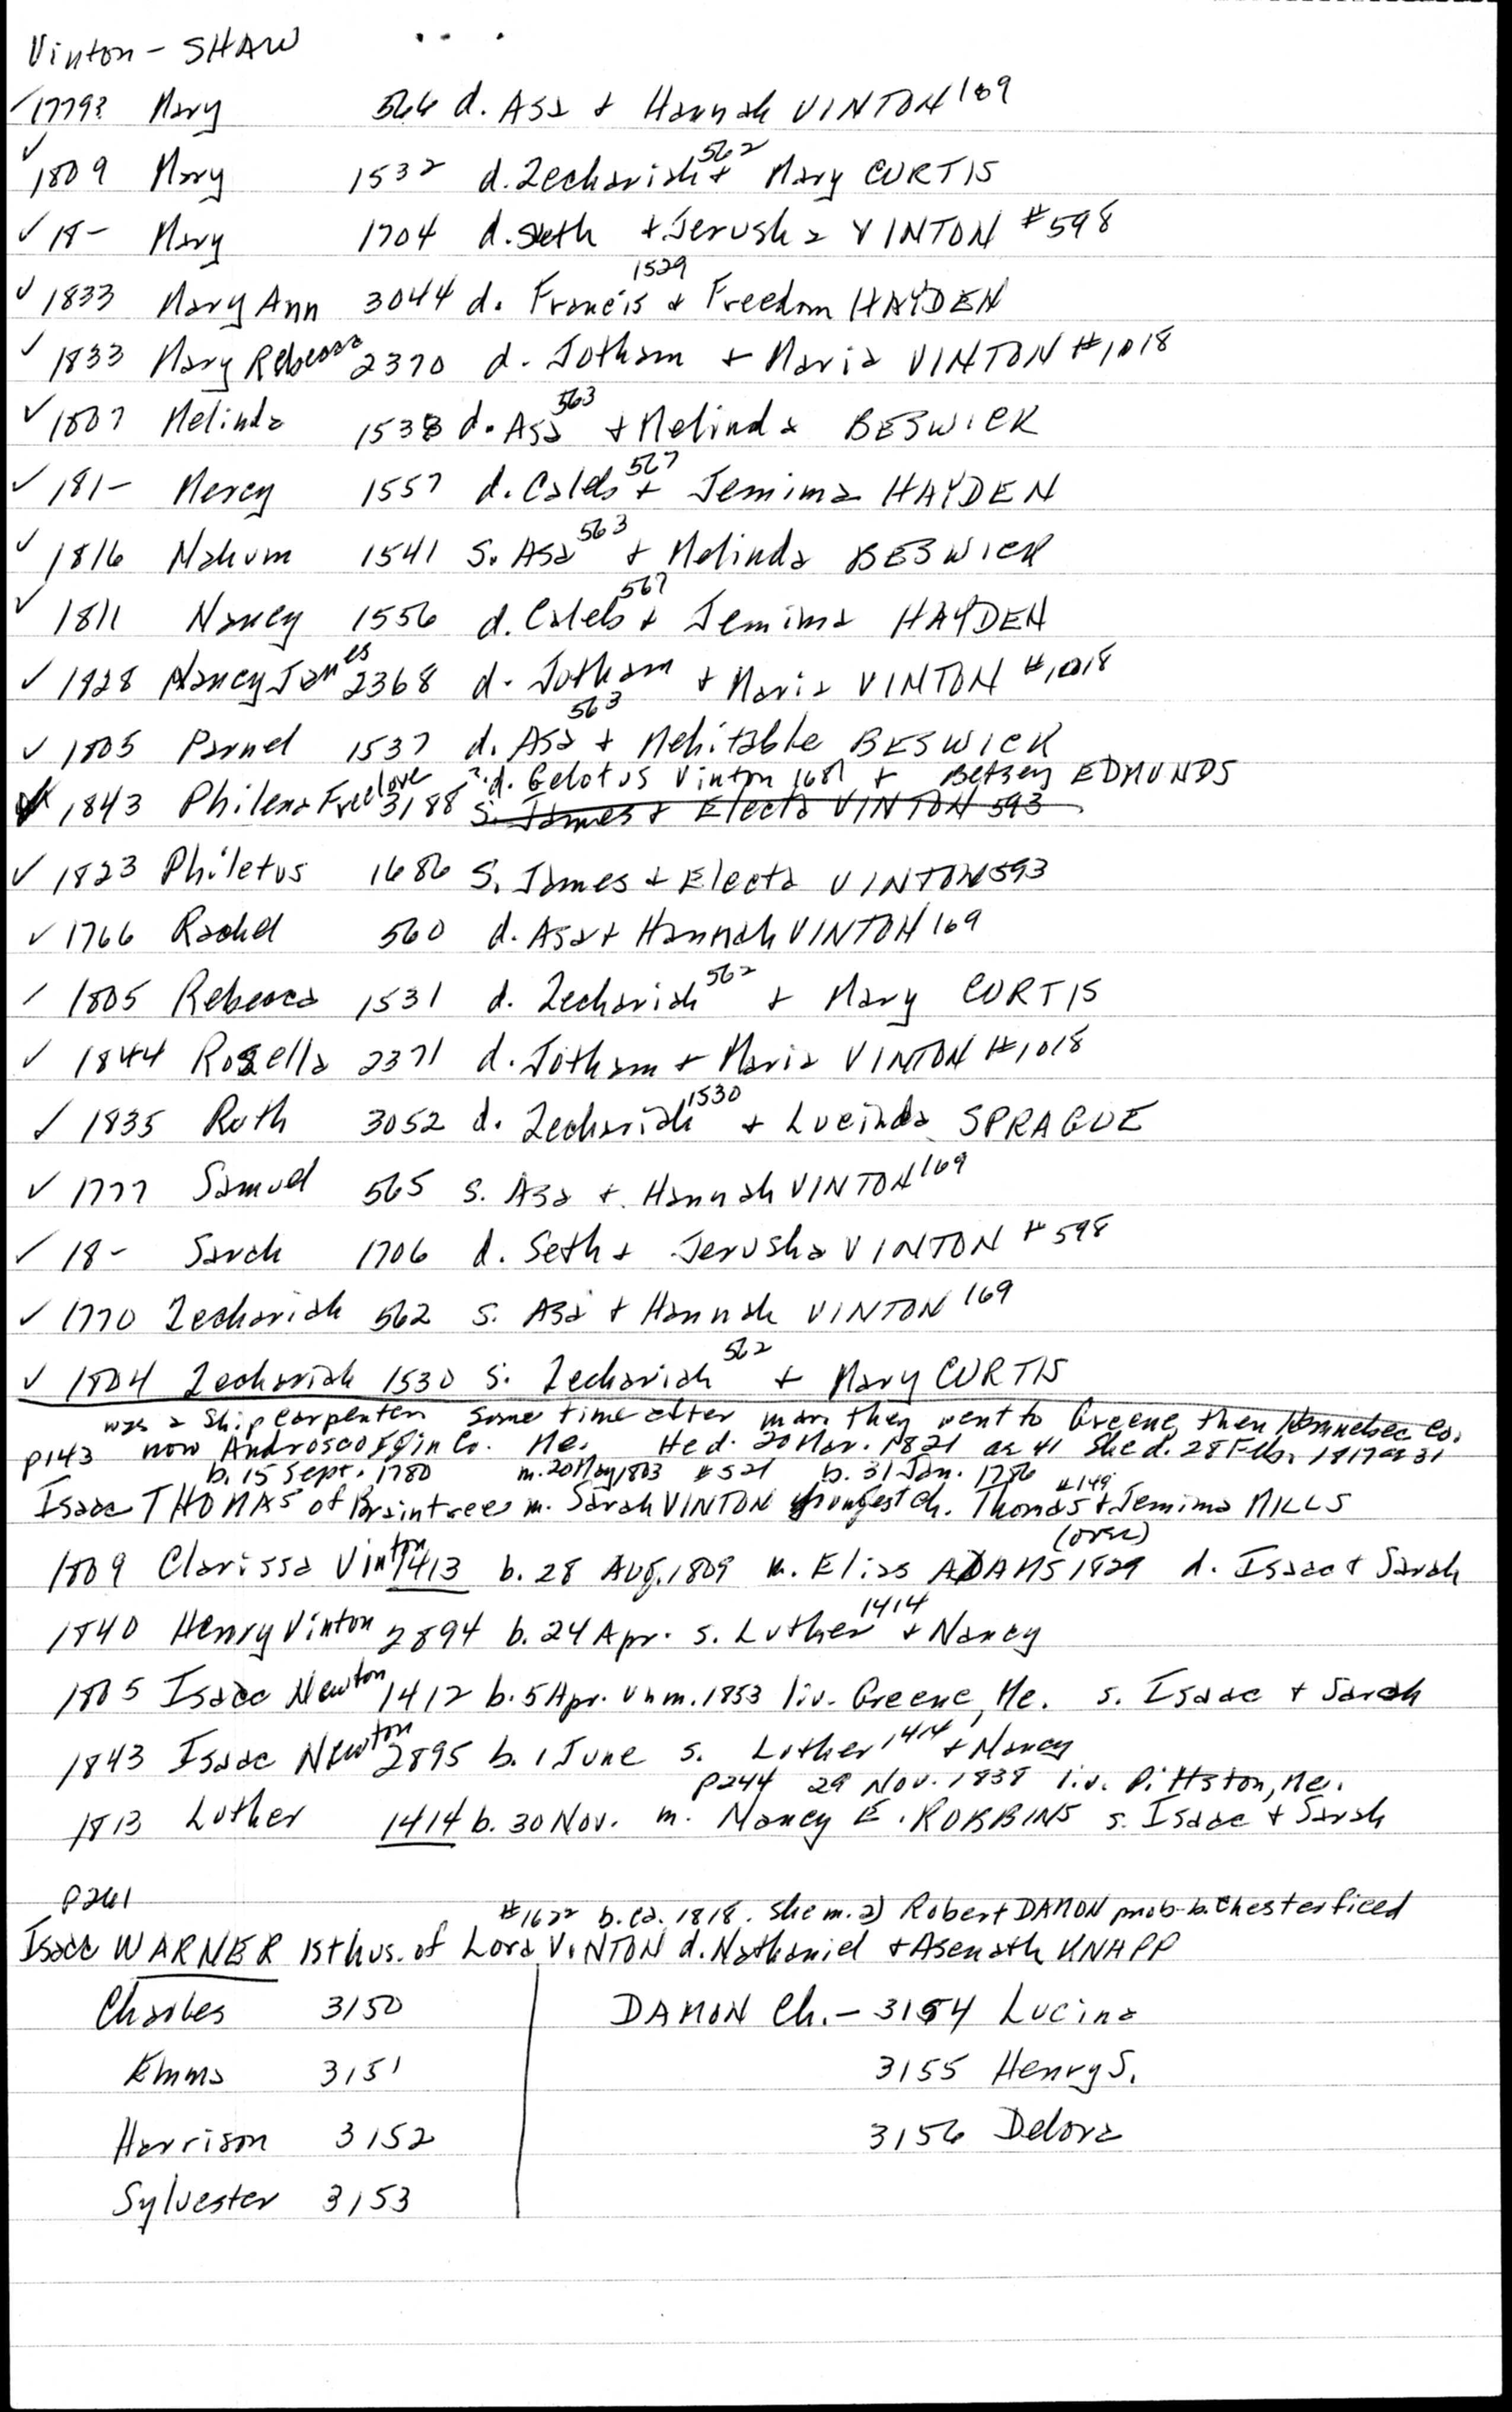 Vinton - SHAW
✓1779? Mary 566 d. Asa + Hannah VINTON 169
✓ 1809 Mary 1532 d. Zechariah 562 + Mary CURTIS
✓ 18- Mary 1704 d. Seth + Jerusha VINTON #598
✓ 1833 Mary Ann 3044 d. Francis 1529 + Freedom HAYDEN
✓ 1833 Mary Rebecca 2370 d. Jotham + Maria VINTON #1018
✓ 1807 Melinda 1538 d. Asa 563 + Melinda BESWICK
✓ 181- Mercy 1557 d. Caleb 567 + Jemima HAYDEN
✓ 1816 Nahum 1541 S. Asa 563 + Melinda BESWICK
✓ 1811 Nancy 1556 d. Caleb 567 + Jemima HAYDEN
✓ 1828 Nancy Janes 2368 d. Jotham + Maria VINTON #1018
✓ 1805 Parnel 1537 d. Asa 563 + Mehitable BESWICK
✓ 1843 Philena Freelove 3188 d. Gelotus Vinton 1681 + Betsey EDMUNDS
S. James + Electa VINTON 593
✓ 1823 Philetus 1686 S. James + Electa VINTON 593
✓ 1766 Rachel 560 d. Asa + Hannah VINTON 169
✓ 1805 Rebecca 1531 d. Zechariah 562 + Mary CURTIS
✓ 1844 Rosella 2371 d. Jotham + Maria VINTON #1018
✓ 1835 Ruth 3052 d. Zechariah 1530 + Lucinda SPRAGUE
✓ 1777 Samuel 565 S. Asa + Hannah VINTON 169
✓ 18- Sarah 1706 d. Seth + Jerusha VINTON #598
✓ 1770 Zechariah 562 S. Asa + Hannah VINTON 169
✓ 1804 Zechariah 1530 S. Zechariah 562 + Mary CURTIS
was a Ship Carpenter Some time after marr they went to Greene, then Kennebec Co.
p143 now Androscoggin Co. Me. He d. 20 Mar. 1821 ae 41 She d. 28 Feb. 1817 ae 31
b. 15 Sept. 1780 m. 20 May 1803 #521 b. 31 Jan. 1786 #149
Isaac THOMAS of Braintree m. Sarah VINTON youngest ch. Thomas + Jemima MILLS
1809 Clarissa Vinton 1413 b. 28 Aug. 1809 m. Elias ADAMS 1829 d. Isaac + Sarah
1840 Henry Vinton 2894 b. 24 Apr. s. Luther 1414 + Nancy
1805 Isaac Newton 1412 b. 5 Apr. unm. 1853 liv. Greene, Me. s. Isaac + Sarah
1843 Isaac Newton 2895 b. 1 June s. Luther 1414 + Nancy
p244 29 Nov. 1838 liv. Pittston, Me.
1813 Luther 1414 b. 30 Nov. m. Nancy E. ROBBINS s. Isaac + Sarah
p261
#1622 b. ca. 1818. She m. 2) Robert DAMON prob. b. Chesterfield
Isaac WARNER 1st hus. of Lora VINTON d. Nathaniel + Asenath KNAPP
Charles 3150 DAMON Ch. - 3154 Lucina
Emma 3151 3155 Henry S.
Harrison 3152 3156 Delora
Sylvester 3153